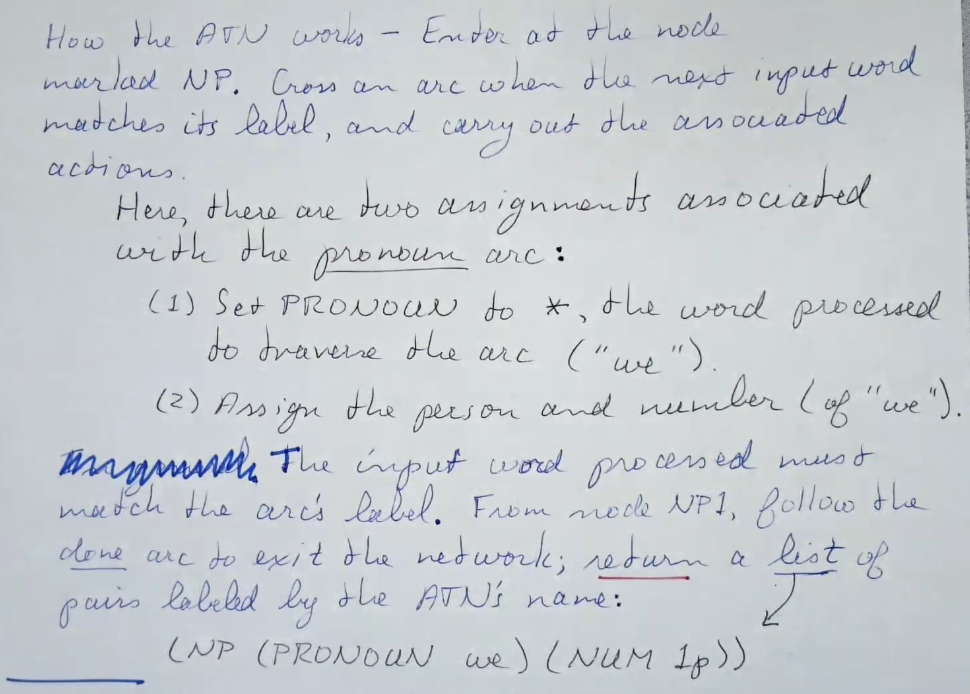 How the ATN works – Enter at the node
marked NP. Cross an arc when the next input word
matches its label, and carry out the associated
actions.
Here, there are two assignments associated
with the pronoun arc:
(1) Set PRONOUN to *, the word processed
to traverse the arc ("we").
(2) Assign the person and number (of "we").
The input word processed must
match the arc's label. From node NP1, follow the
done arc to exit the network; return a list of
pairs labeled by the ATN's name:
(NP (PRONOUN we) (NUM 1p))